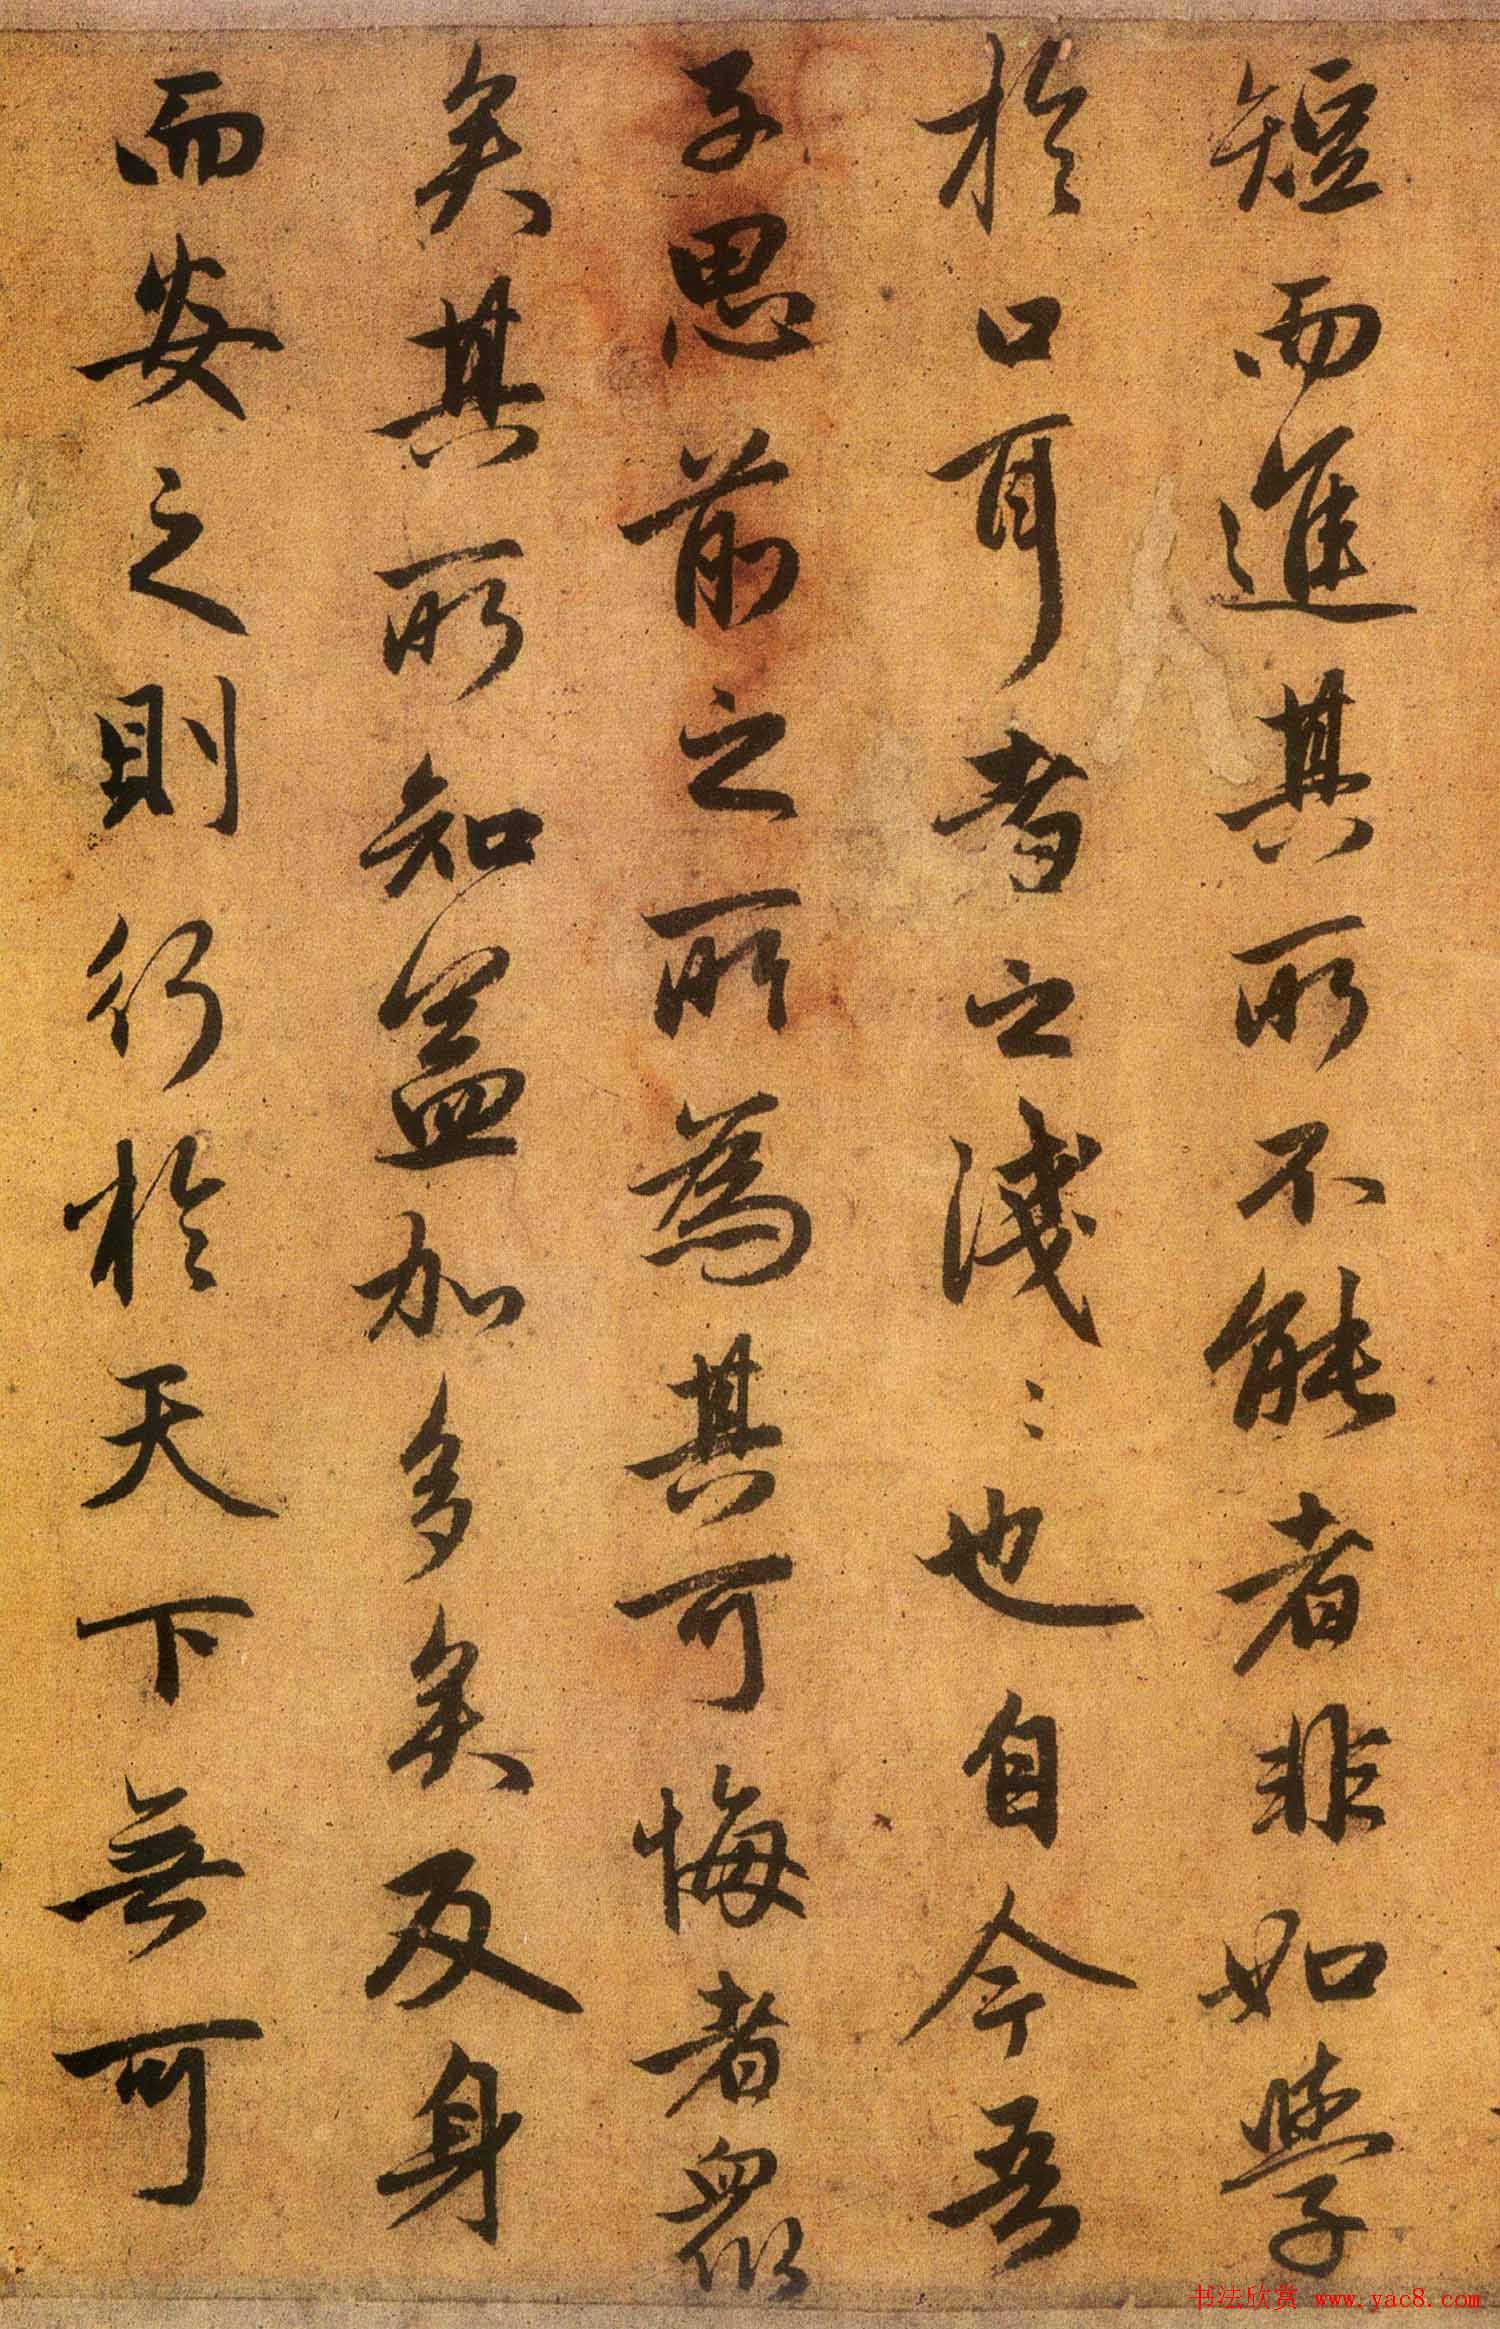 短而進其所不能者非如學
於口耳者之淺〻也自今吾
子思前之所為其可悔者衆
矣其所知益加多矣反身
而安之則行於天下無可
书法欣赏 www.yac8.com